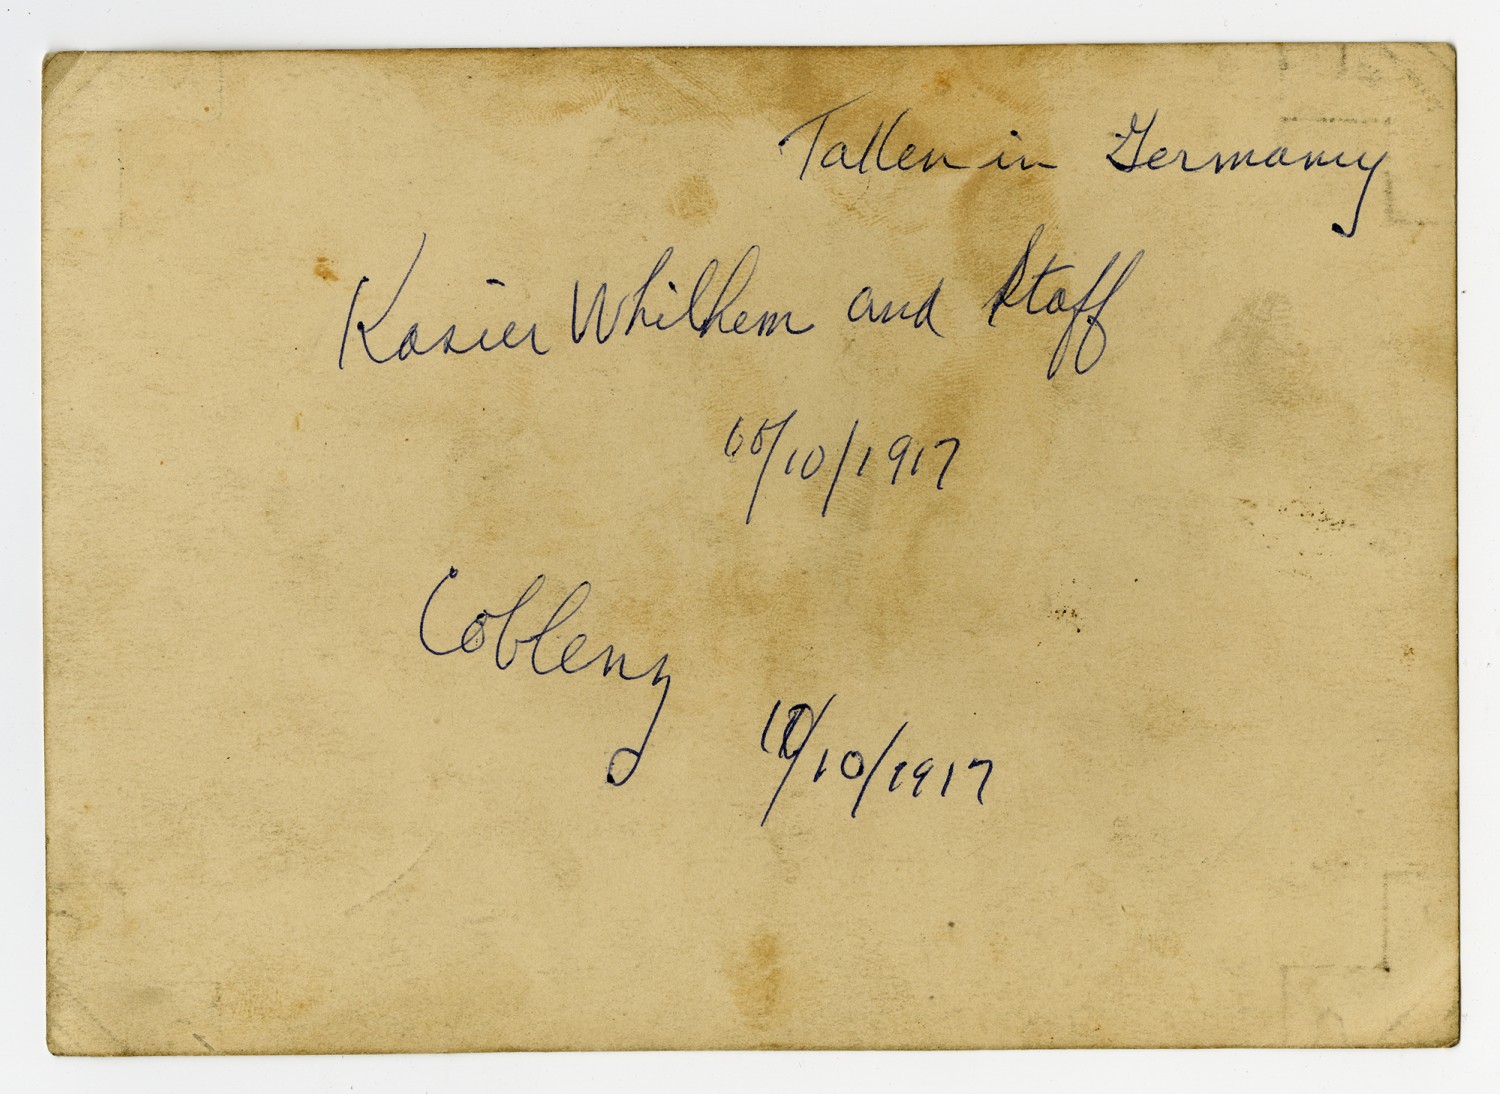 Taken in Germany
Kasier Whilhem and Staff
10/10/1917
Coblenz
10/10/1917